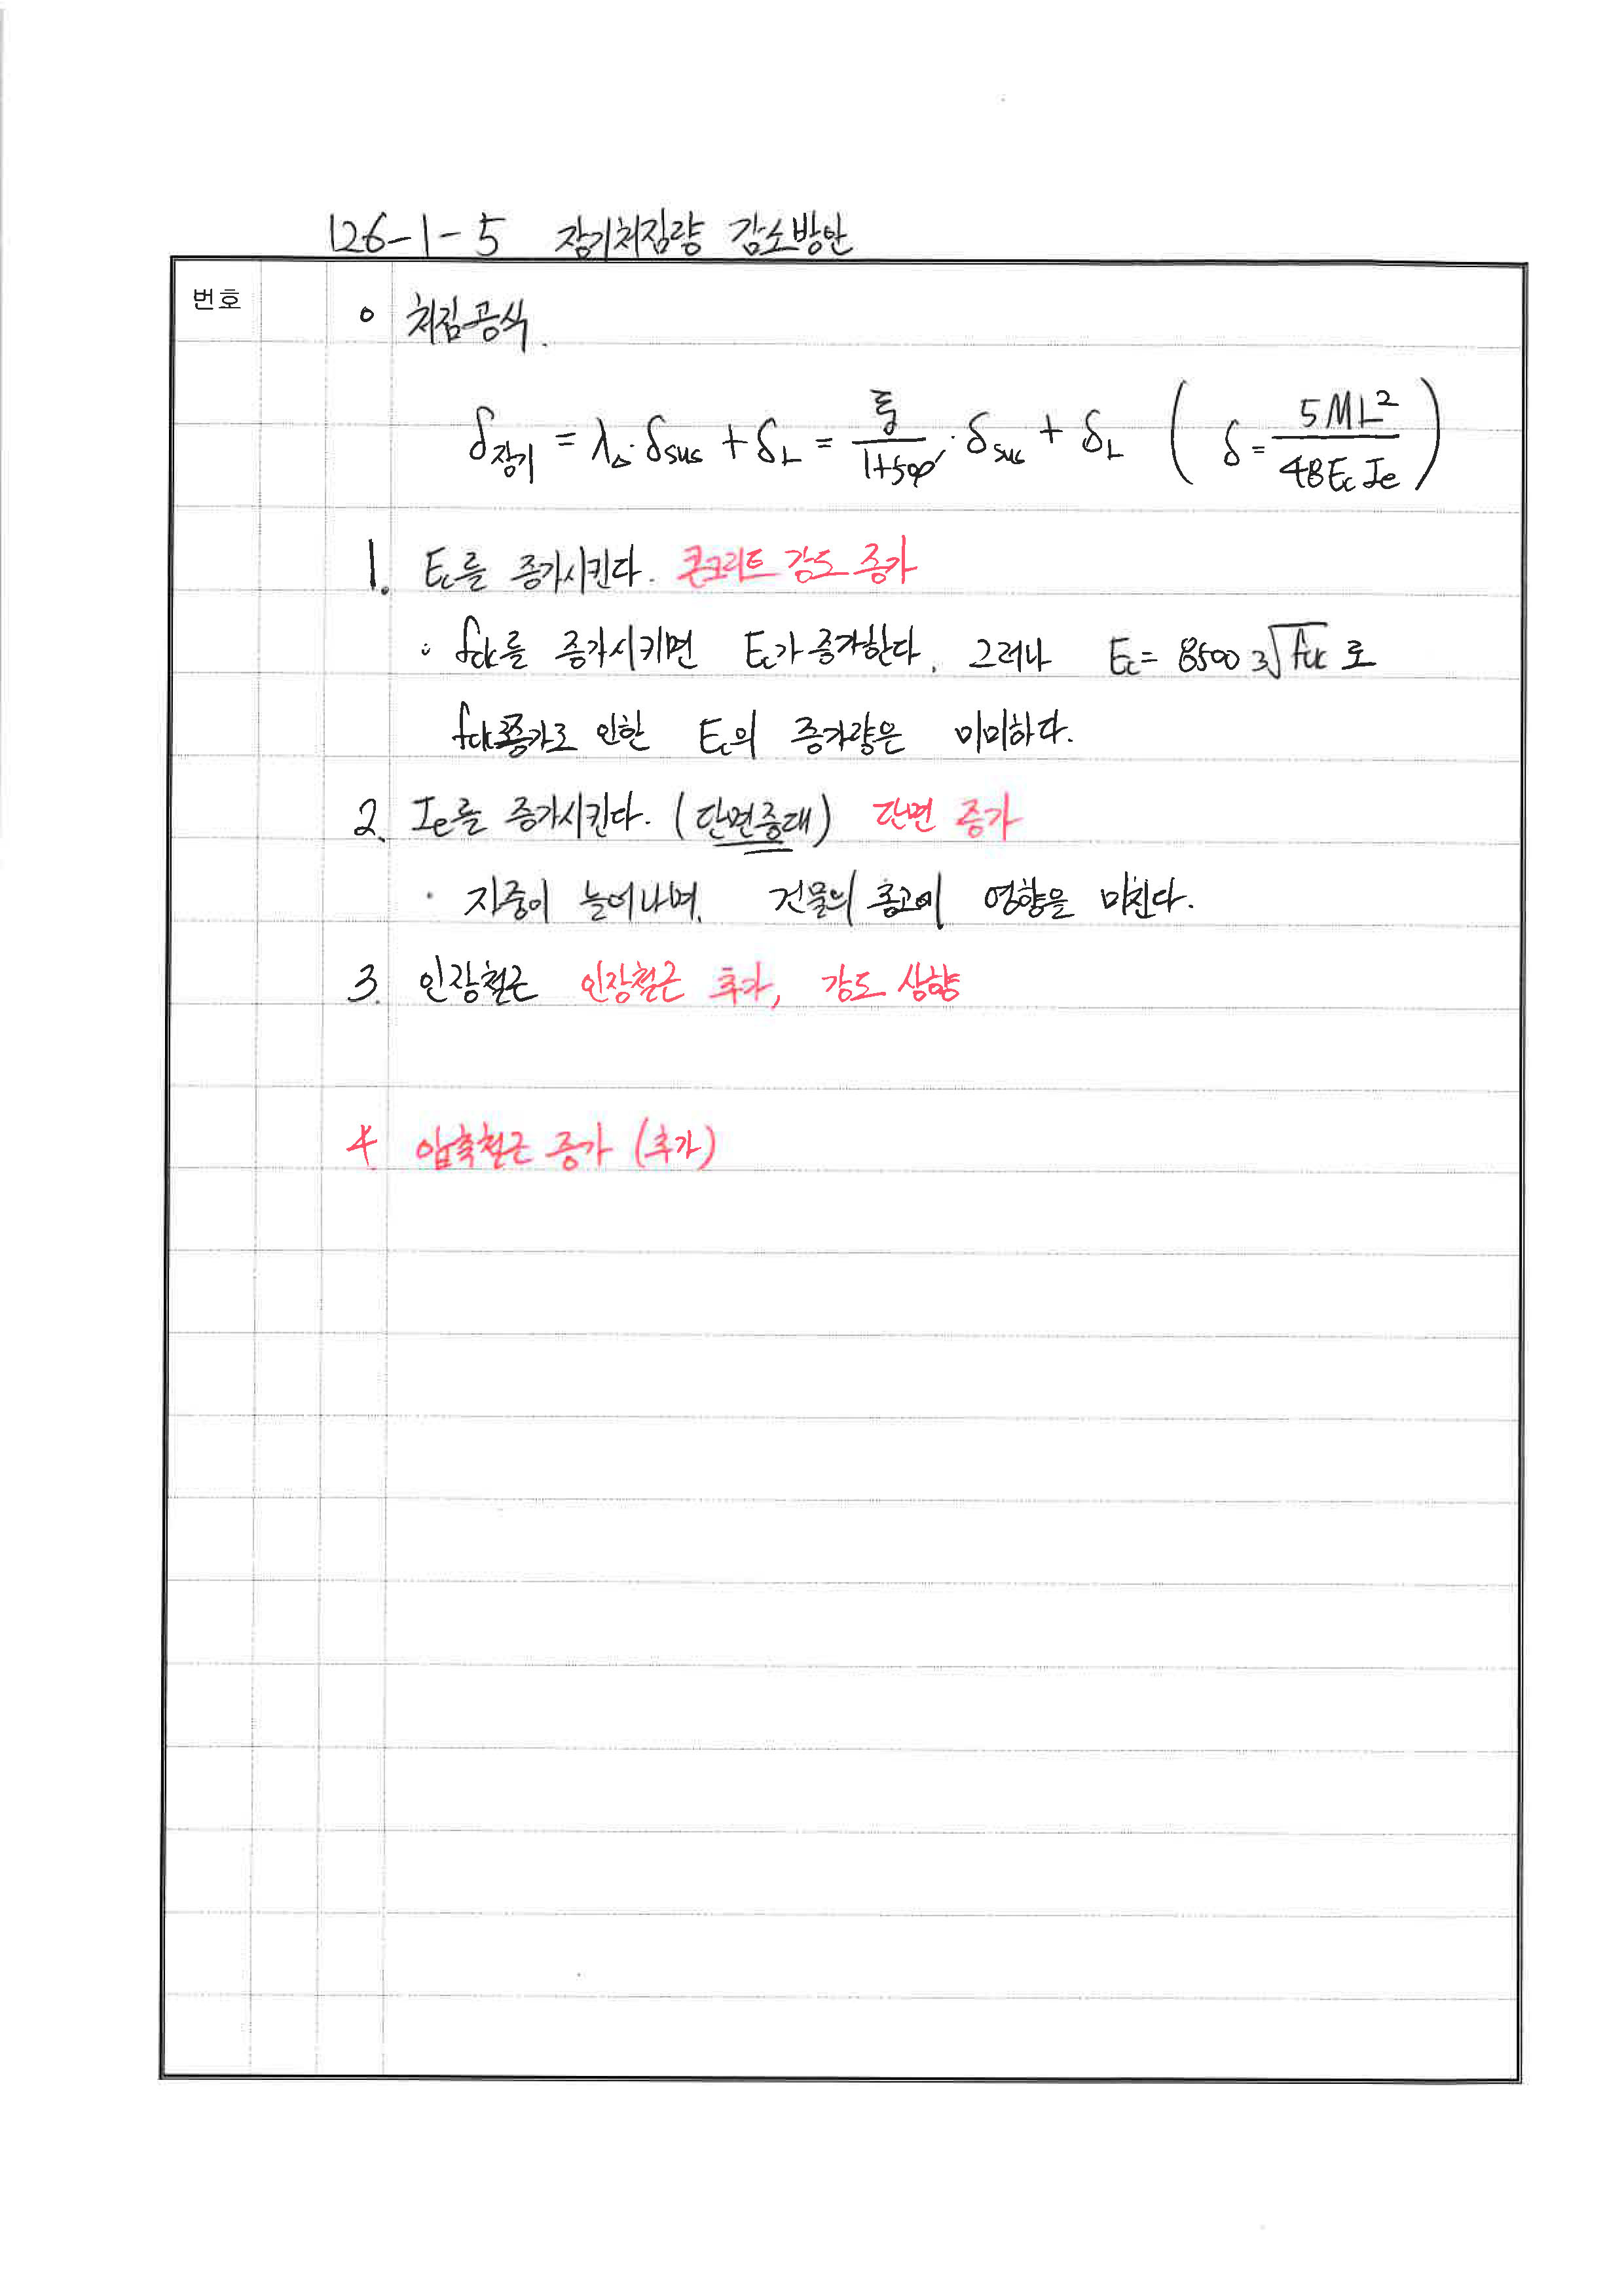 126-1-5 장기처짐량 감소방안
번호
○ 처짐공식.
δ장기 = λ△·δsus + δL = ξ/(1+50ρ') · δsus + δL ( δ = 5ML²/(48EcIe) )
1. Ec를 증가시킨다. 콘크리트 강도 증가
: fck를 증가시키면 Ec가 증가한다. 그러나 Ec = 8500 ³√fck 로
fck증가로 인한 Ec의 증가량은 미미하다.
2. Ie를 증가시킨다. (단면증대) 단면 증가
· 자중이 늘어나며, 건물의 층고에 영향을 미친다.
3. 인장철근 인장철근 추가, 강도 상향
4. 압축철근 증가 (추가)